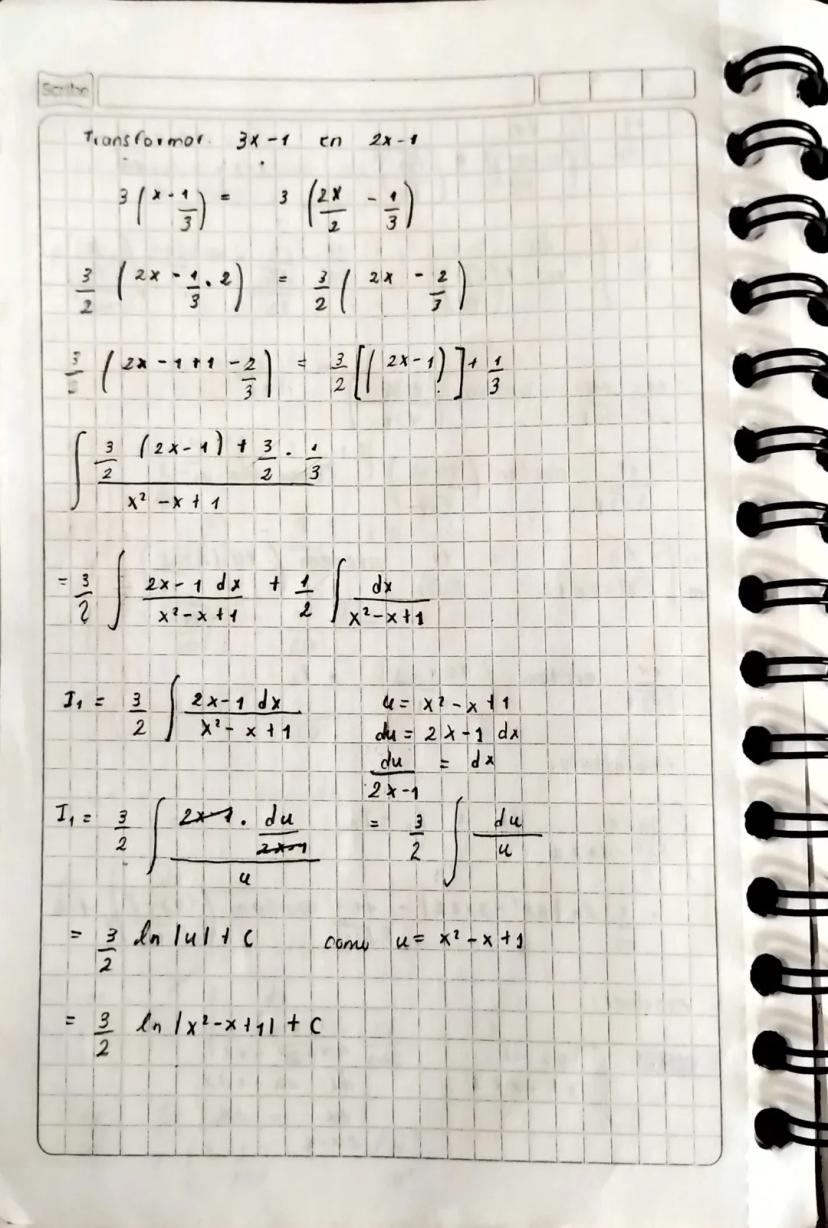 Scribe
Transformar 3x-1 en 2x-1
3(x - 1/3) = 3(2x/2 - 1/3)
3/2 (2x - 1/3 . 2) = 3/2 (2x - 2/3)
3/2 (2x - 1 + 1 - 2/3) = 3/2 [(2x-1)] + 1/3
∫ (3/2 (2x-1) + 3/2 . 1/3) / (x² - x + 1)
= 3/2 ∫ (2x-1 dx)/(x² - x + 1) + 1/2 ∫ dx/(x² - x + 1)
I₁ = 3/2 ∫ (2x-1 dx)/(x² - x + 1) u = x² - x + 1
du = 2x-1 dx
du/(2x-1) = dx
I₁ = 3/2 ∫ (2x-1 . du/(2x-1))/u = 3/2 ∫ du/u
= 3/2 ln |u| + C como u = x² - x + 1
= 3/2 ln |x² - x + 1| + C